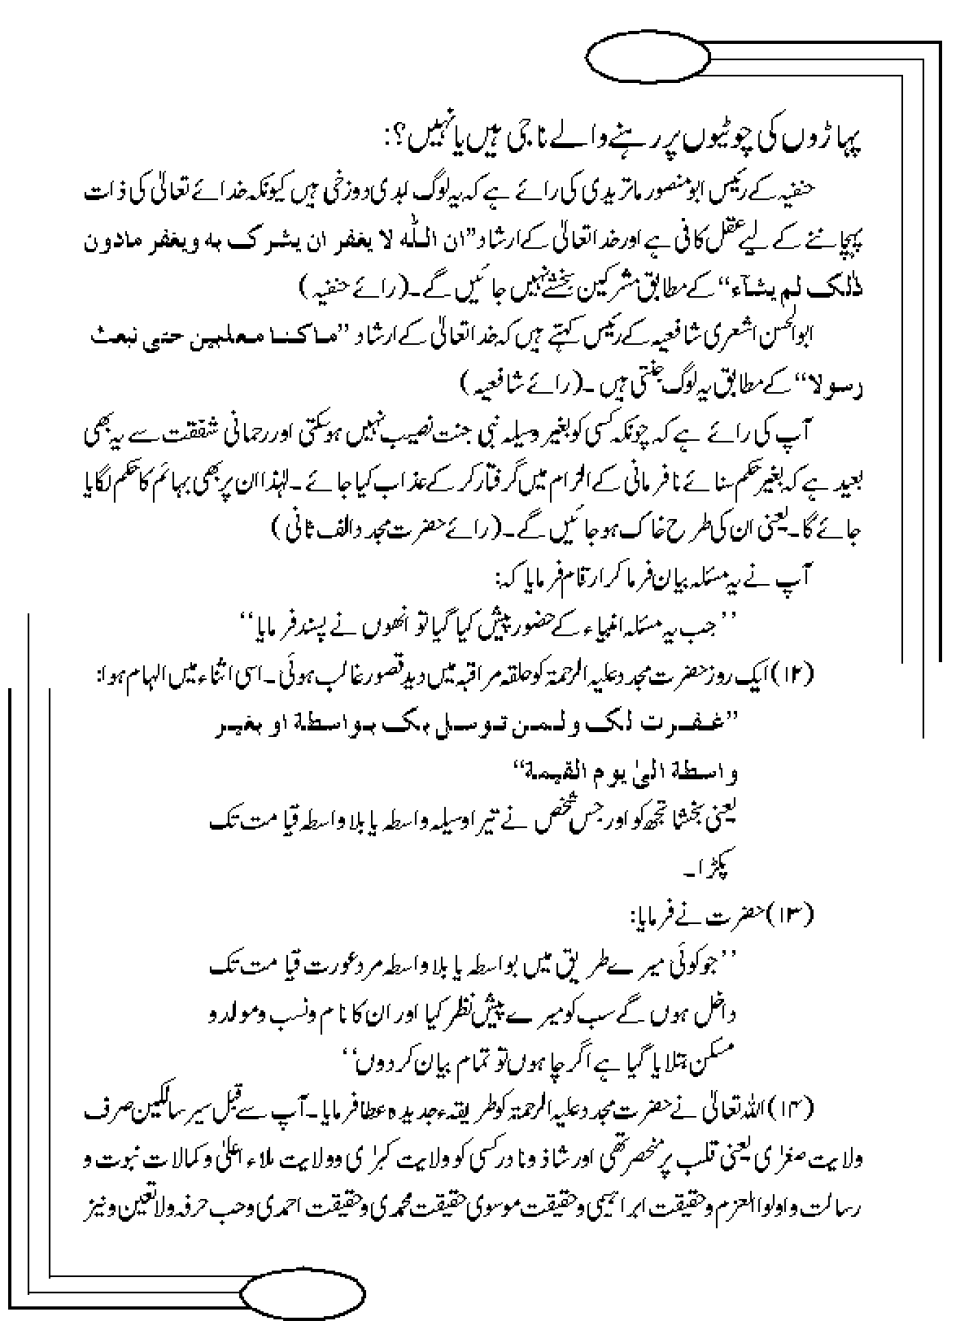 پہاڑوں کی چوٹیوں پر رہنے والے ناجی ہیں یا نہیں؟:
حنفیہ کے رئیس ابو منصور ماتریدی کی رائے ہے کہ یہ لوگ ابدی دوزخی ہیں کیونکہ خدائے تعالیٰ کی ذات
پہچاننے کے لیے عقل کافی ہے اور خدا تعالیٰ کے ارشاد ”ان اللّٰه لا یغفر ان یشرک به ویغفر مادون
ذٰلک لم یشآء“ کے مطابق مشرکین بخشے نہیں جائیں گے۔ (رائے حنفیہ)
ابوالحسن اشعری شافعیہ کے رئیس کہتے ہیں کہ خدا تعالیٰ کے ارشاد ”ماکنا معلبین حتی نبعث
رسولا“ کے مطابق یہ لوگ جنتی ہیں۔ (رائے شافعیہ)
آپ کی رائے ہے کہ چونکہ کسی کو بغیر وسیلہ نبی جنت نصیب نہیں ہوسکتی اور رحمانی شفقت سے یہ بھی
بعید ہے کہ بغیر حکم سنائے نافرمانی کے الزام میں گرفتار کر کے عذاب کیا جائے۔ لہٰذا ان پر بھی بہائم کا حکم لگایا
جائے گا۔ یعنی ان کی طرح خاک ہوجائیں گے۔ (رائے حضرت مجدد الف ثانی)
آپ نے یہ مسئلہ بیان فرما کر ارقام فرمایا کہ:
’’جب یہ مسئلہ انبیاء کے حضور پیش کیا گیا تو انھوں نے پسند فرمایا‘‘
(۱۲) ایک روز حضرت مجدد علیہ الرحمۃ کو حلقہ مراقبہ میں دید قصور غالب ہوئی۔ اسی اثناء میں الہام ہوا:
”غفرت لک ولمن توسل بک بواسطة او بغیر
واسطة الیٰ یوم القیمة“
یعنی بخشا تجھ کو اور جس شخص نے تیرا وسیلہ واسطہ یا بلا واسطہ قیامت تک
پکڑا۔
(۱۳) حضرت نے فرمایا:
’’جو کوئی میرے طریق میں بواسطہ یا بلا واسطہ مرد عورت قیامت تک
داخل ہوں گے سب کو میرے پیش نظر کیا اور ان کا نام و نسب و مولد و
مسکن بتلایا گیا ہے اگر چاہوں تو تمام بیان کردوں‘‘
(۱۴) اللہ تعالیٰ نے حضرت مجدد علیہ الرحمۃ کو طریقہء جدیدہ عطا فرمایا۔ آپ سے قبل سیر سالکین صرف
ولایت صغرٰی یعنی قلب پر منحصر تھی اور شاذ و نادر کسی کو ولایت کبرٰی و ولایت ملاء اعلیٰ و کمالات نبوت و
رسالت و اولوالعزم و حقیقت ابراہیمی و حقیقت موسوی حقیقت محمدی و حقیقت احمدی و حب حرفہ ولا تعین و نیز